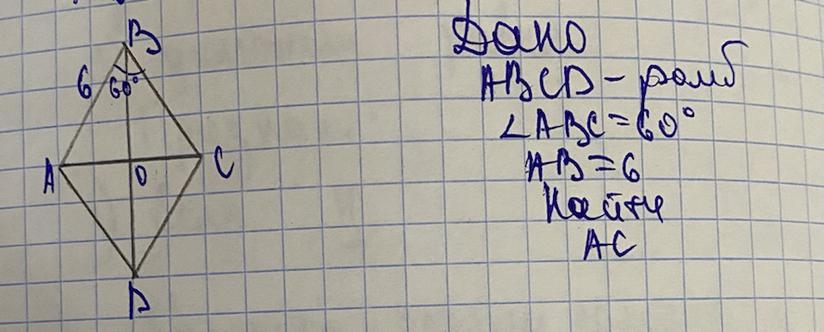 B
6
60°
A
O
C
D
Дано
ABCD - ромб
∠ABC = 60°
AB = 6
Найти
AC